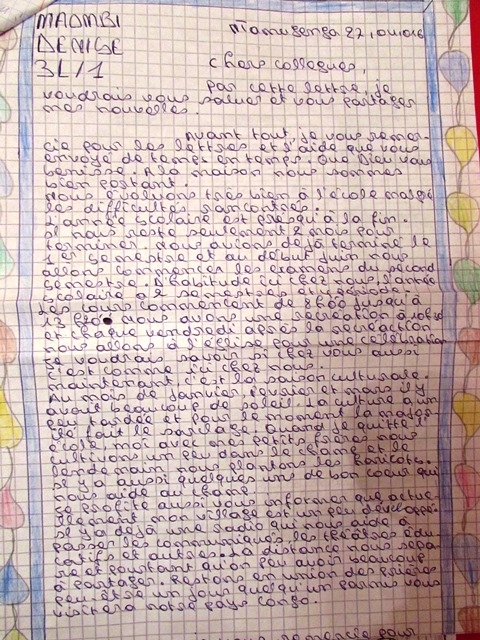 MAOMBI
DENISE
3L/1
Chers collegues,
par cette lettre, je
voudrais vous saluer et vous partager
mes nouvelles.
Avant tout, je vous remer-
cie pour les lettres et l'aide que vous
envoyé de temps en temps. Que Dieu vous
benisse. A la maison nous sommes
bien portant.
Nous evoluons très bien à l'école malgré
les difficultés rancontrées.
L'année scolaire est presqu'à la fin.
Il nous reste seulement 2 mois pour
terminer. Nous avions dejà terminé le
1er semestre et au début juin nous
allons commencer les examens du second
semestre. D'habitude ici chez nous l'année
scolaire a 2 semestres et
Les cours commencent de 8h00 jusqu'à
Nous avons une recréation à
et chaque vendredi après la recréaction
nous allons à l'église pour une célébration
je voudrais savoir si chez vous aussi
c'est comme ici chez nous.
maintenant c'est la saison culturale.
Au mois de janvier, fevrier et mars il y
avait beaucoup de soleil. La culture a un
peu tardée et pour ce moment la major-
ité fait le sarclage. Quand je quitte l'
école, moi avec mes petits frères nous
cultivons un peu dans le champ et le
lendemain nous plantons les haricots.
Il y a aussi quelques uns de bon coeur qui
nous aide au champ.
Je profite aussi vous informer que actue-
llement mon village est un peu développé.
Il y a dejà une radio qui nous aide à
passer les communiqués, les théâtres édu-
catifs et autres. La distance nous sépa-
re et pourtant qu'on peu avoir beaucoup
à partager. Restons en union des prières
peu être un jour quelqu'un parmis vous
visitera notre pays Congo.